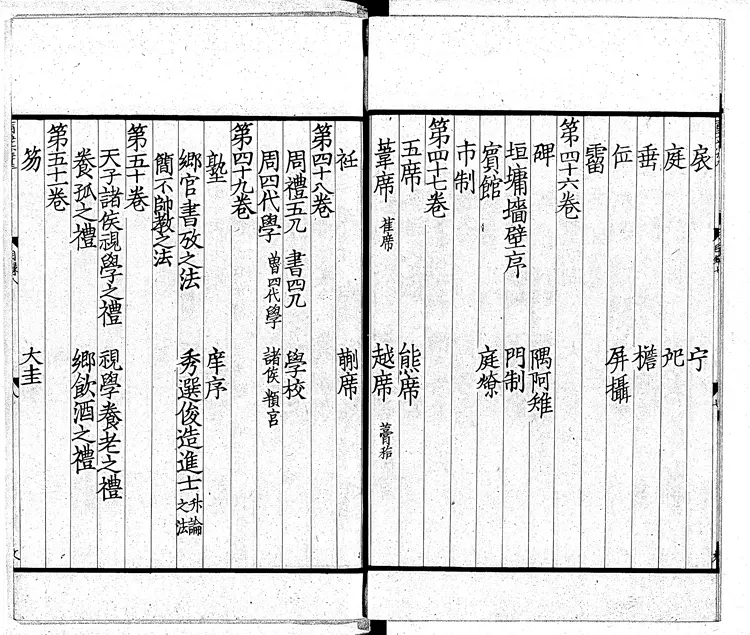 扆 宁
庭 戺
垂 檐
位 屏攝
霤
第四十六卷
碑 隅阿雉
垣墉墻壁序 門制
賓館 庭燎
市制
第四十七卷
五席 熊席
葦席 萑席 越席 藁秸
衽 蒯席
第四十八卷
周禮五几 書四几 學校
周四代學 魯四代學 諸侯頖宮
第四十九卷
塾 庠序
鄉官書攷之法 秀選俊造進士升論之法
簡不帥教之法
第五十卷
天子諸侯視學之禮 視學養老之禮
養孤之禮 鄉飲酒之禮
第五十一卷
笏 大圭